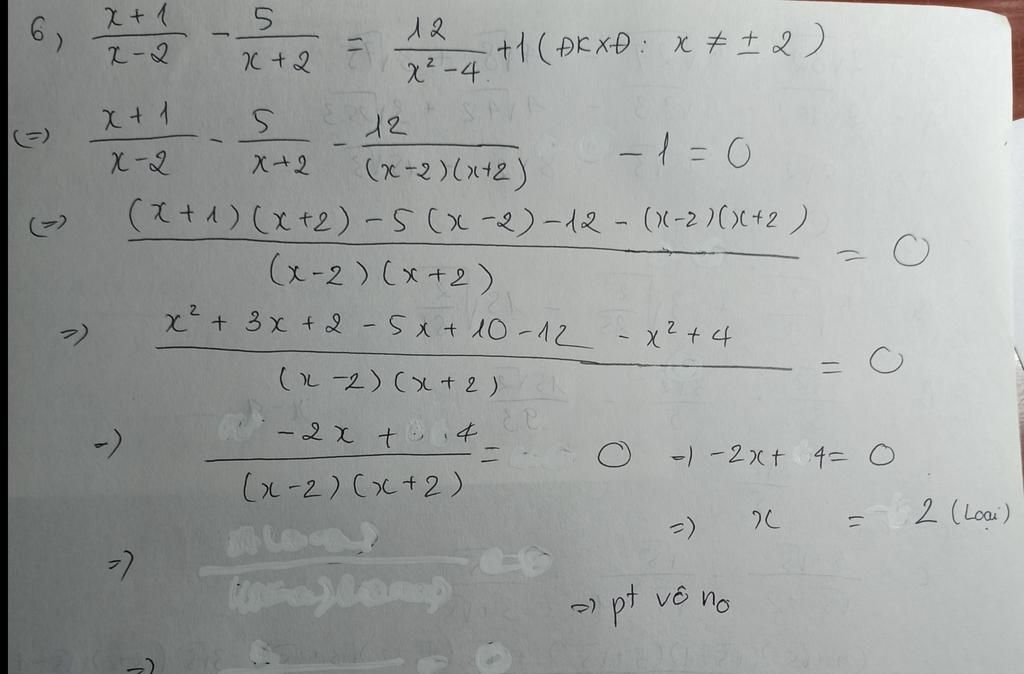 6, (x+1)/(x-2) - 5/(x+2) = 12/(x²-4) +1 (ĐKXĐ: x ≠ ± 2)
(=) (x+1)/(x-2) - 5/(x+2) - 12/((x-2)(x+2)) - 1 = 0
(=) ((x+1)(x+2) - 5(x-2) - 12 - (x-2)(x+2))/((x-2)(x+2)) = 0
=) (x² + 3x + 2 - 5x + 10 - 12 - x² + 4)/((x-2)(x+2)) = 0
=) (-2x + 4)/((x-2)(x+2)) = 0 =) -2x + 4 = 0
=) x = 2 (Loại)
=)
=) pt vô no
=)